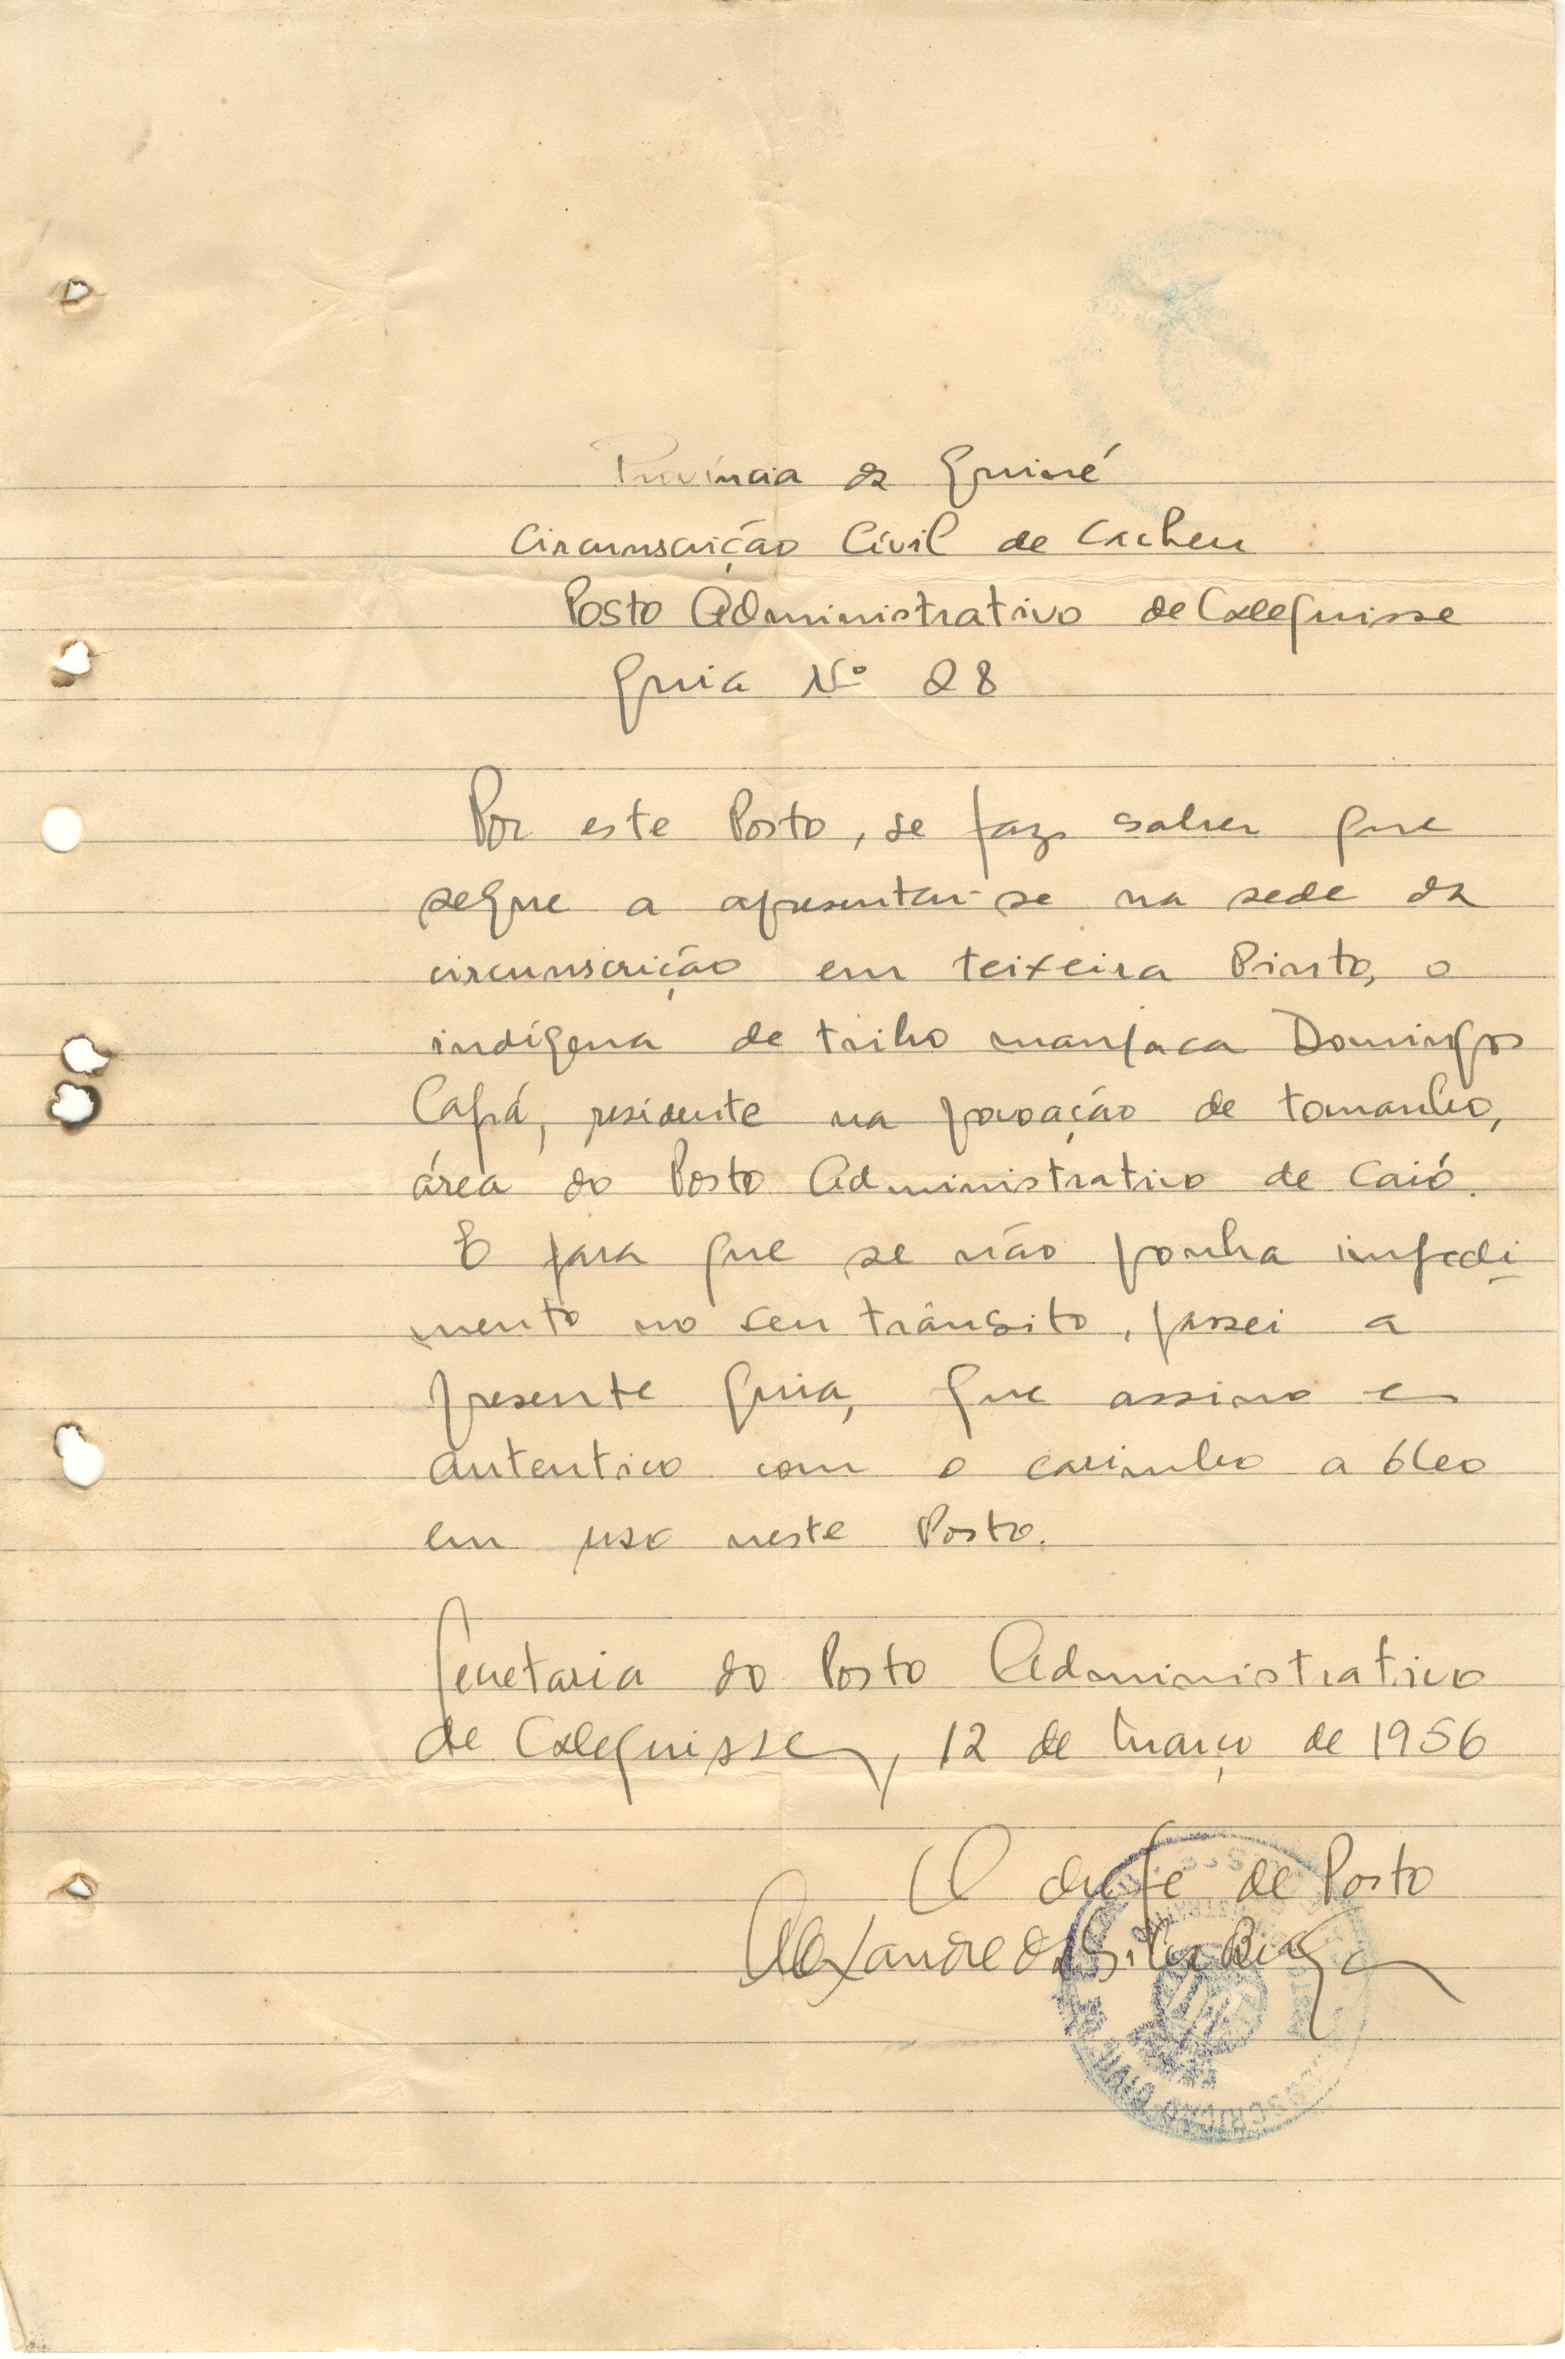 Província da Guiné
Circunscrição Civil de Cacheu
Posto Administrativo de Calequisse
Guia Nº 28
Por este Posto, se faz saber que
segue a apresentar-se na sede da
circunscrição em teixeira Pinto, o
indígena de tribo manjaca Domingos
Capá, residente na povoação de tomanho,
área do Posto Administrativo de Caió.
E para que se não ponha impedi
mento no seu trânsito, passei a
presente guia, que assino e
autentico com o carimbo a óleo
em uso neste Posto.
Secretaria do Posto Administrativo
de Calequisse, 12 de março de 1956
O chefe de Posto
Alexandre da Silva Braga